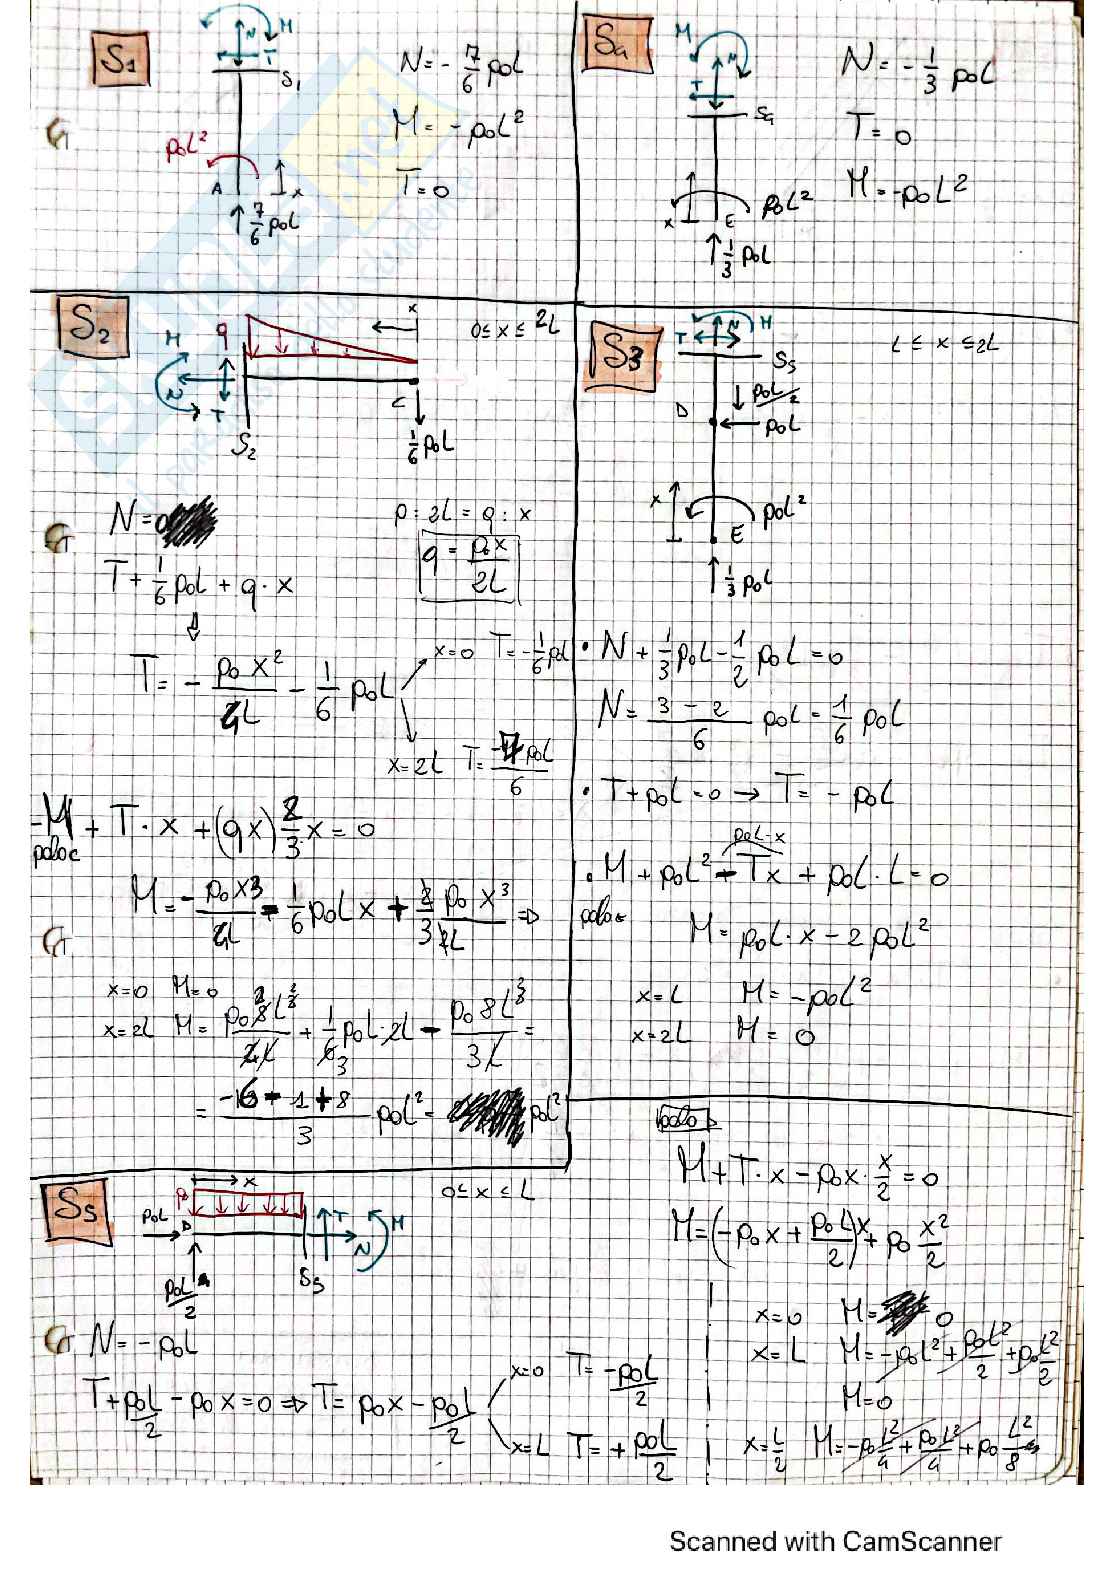 S1
M
N
T
S1
p₀L²
A
x
7/6 p₀L
N = - 7/6 p₀L
M = - p₀L²
T = 0
S4
M
N
T
S4
x
E
p₀L²
1/3 p₀L
N = - 1/3 p₀L
T = 0
M = - p₀L²
S2
q
x
0 ≤ x ≤ 2L
M
N
T
S2
C
1/6 p₀L
N = 0
p : 2L = q : x
q = p₀x / 2L
T + 1/6 p₀L + q · x
T = - p₀x² / 4L - 1/6 p₀L
x = 0 T = - 1/6 p₀L
x = 2L T = -7 p₀L / 6
- M + T · x + (qx) 2/3 x = 0
polo C
M = - p₀x3 / 4L - 1/6 p₀Lx + 2/3 p₀x³ / 2L ⇒
x = 0 M = 0
x = 2L M = p₀8L³ / 2L + 1/6 p₀L · 2L - p₀8L³ / 3L =
= -6 - 1 + 8 / 3 p₀L² = p₀L²
S3
T
N
M
S3
L ≤ x ≤ 2L
p₀L/2
D
p₀L
x
p₀L²
E
1/3 p₀L
• N + 1/3 p₀L - 1/2 p₀L = 0
N = 3 - 2 / 6 p₀L = 1/6 p₀L
• T + p₀L = 0 → T = - p₀L
p₀L · x
• M + p₀L² - Tx + p₀L · L = 0
polo E
M = p₀L · x - 2 p₀L²
x = L M = - p₀L²
x = 2L M = 0
S5
x
0 ≤ x ≤ L
p₀
p₀L
D
T
M
N
S5
p₀L/2
N = - p₀L
T + p₀L/2 - p₀x = 0 ⇒ T = p₀x - p₀L/2
x = 0 T = - p₀L/2
x = L T = + p₀L/2
polo D
M + T · x - p₀x · x/2 = 0
M = (- p₀x + p₀L/2) x + p₀ x²/2
x = 0 M = 0
x = L M = - p₀L² + p₀L²/2 + p₀ L²/2
M = 0
x = L/2 M = - p₀ L²/4 + p₀L²/4 + p₀ L²/8
Scanned with CamScanner